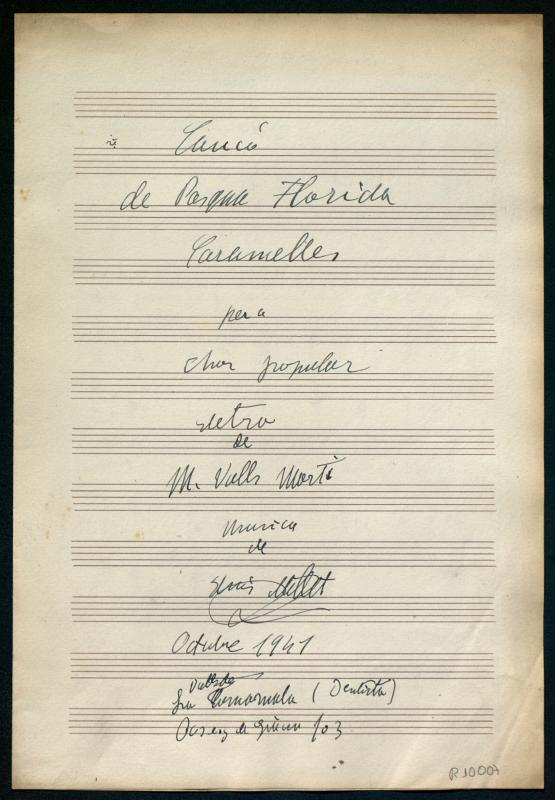 Cancó
de Pasqua Florida
Caramelles
per a
chor popular
Lletra
de
M. Valls Martí
Musica
de
Lluis Millet
Octubre 1941
Valls de
Sra (Dentista)
Passeig de Gràcia 103
R 10007